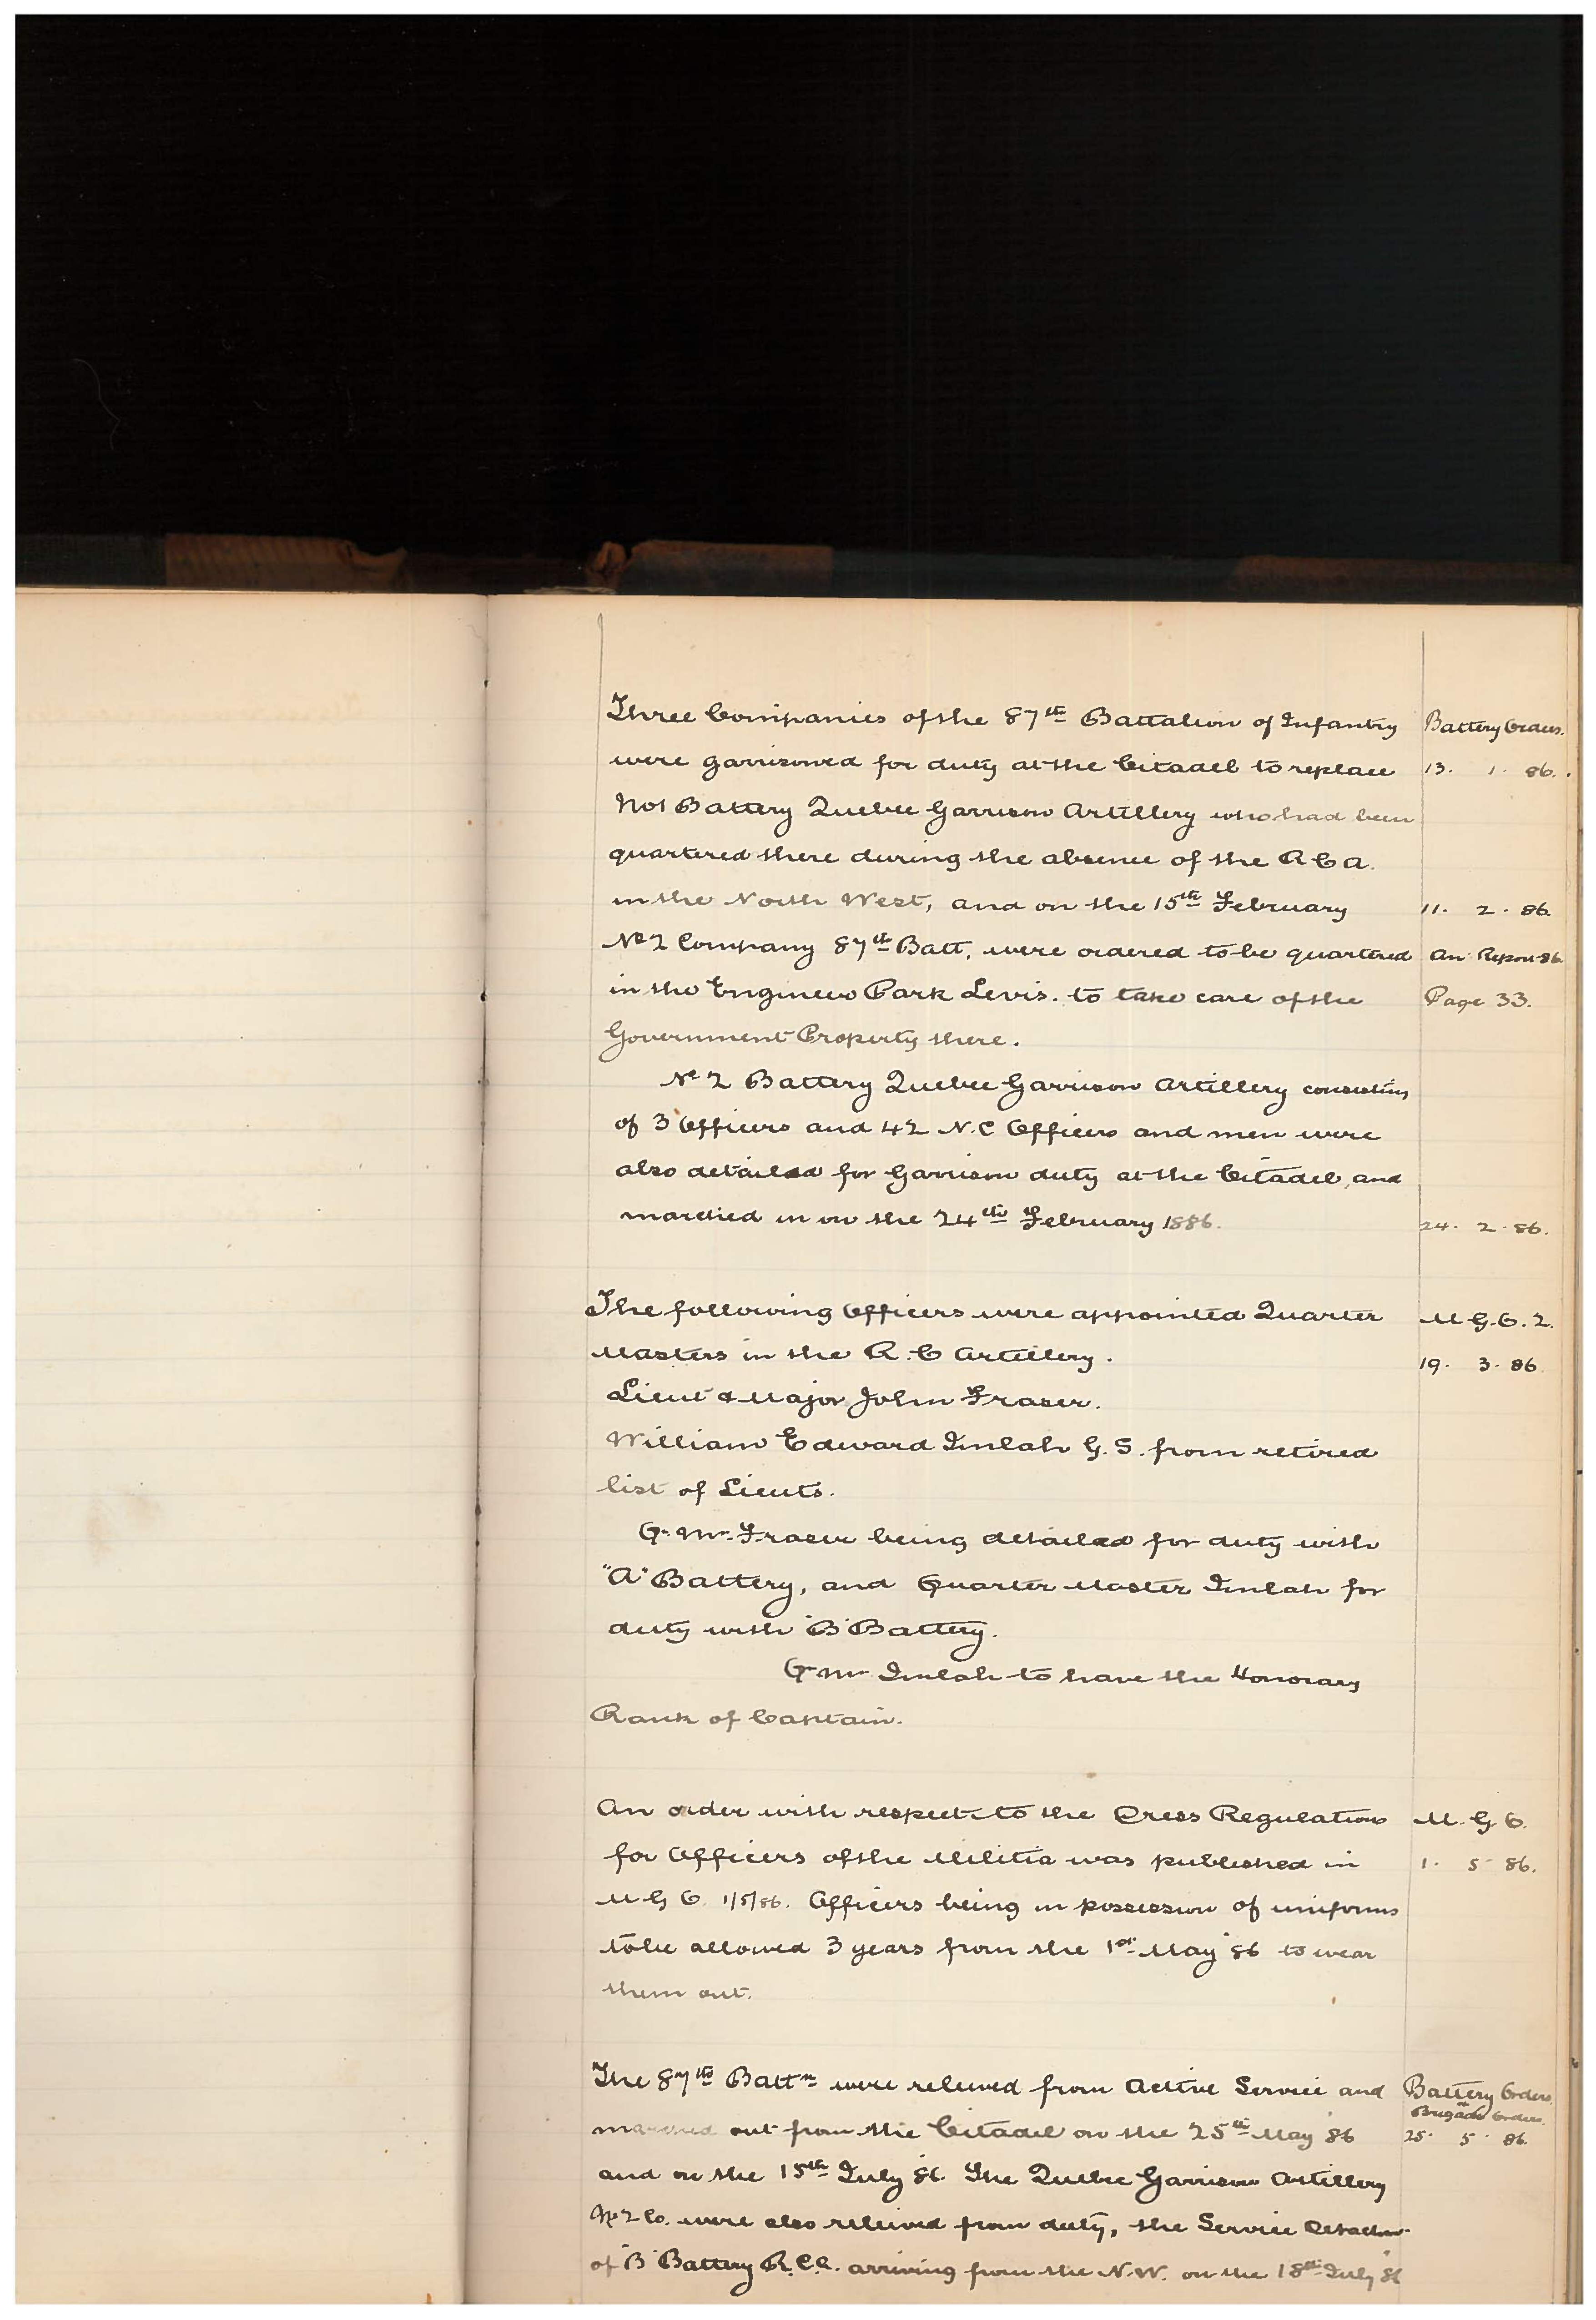 Three Companies of the 87th Battalion of Infantry Battery Orders.
were garrisoned for duty at the Citadel to replace 13. 1. 86.
No 1 Battery Quebec Garrison Artillery who had been
quartered there during the absence of the R C A.
in the North West, and on the 15th February 11. 2. 86.
No 2 Company 87th Batt, were ordered to be quartered An Report 86.
in the Engineer Park Levis. to take care of the Page 33.
Government Property there.
No 2 Battery Quebec Garrison Artillery consisting
of 3 Officers and 42 N.C Officers and men were
also detailed for Garrison duty at the Citadel, and
marched in on the 24th February 1886. 24. 2. 86.
The following Officers were appointed Quarter M.G.O. 2.
Masters in the R.C Artillery. 19. 3. 86
Lieut & Major John Fraser.
William Edward Imlah G.S. from retired
list of Lieuts.
Qr Mr Fraser being detailed for duty with
"A" Battery, and Quarter Master Imlah for
duty with "B" Battery.
Qr Mr Imlah to have the Honorary
Rank of Captain.
An order with respect to the Dress Regulations M.G.O.
for Officers of the Militia was published in 1. 5 86.
M G O. 1/5/86. Officers being in possession of uniforms
to be allowed 3 years from the 1st May 86 to wear
them out.
The 87th Battn were relieved from Active Service and Battery Orders
Brigade Orders.
marched out from the Citadel on the 25th May 86 25. 5. 86.
and on the 15th July 86. The Quebec Garrison Artillery
No 2 Co. were also relieved from duty, the Service
of "B" Battery R.C.A. arriving from the N.W. on the 18th July 86